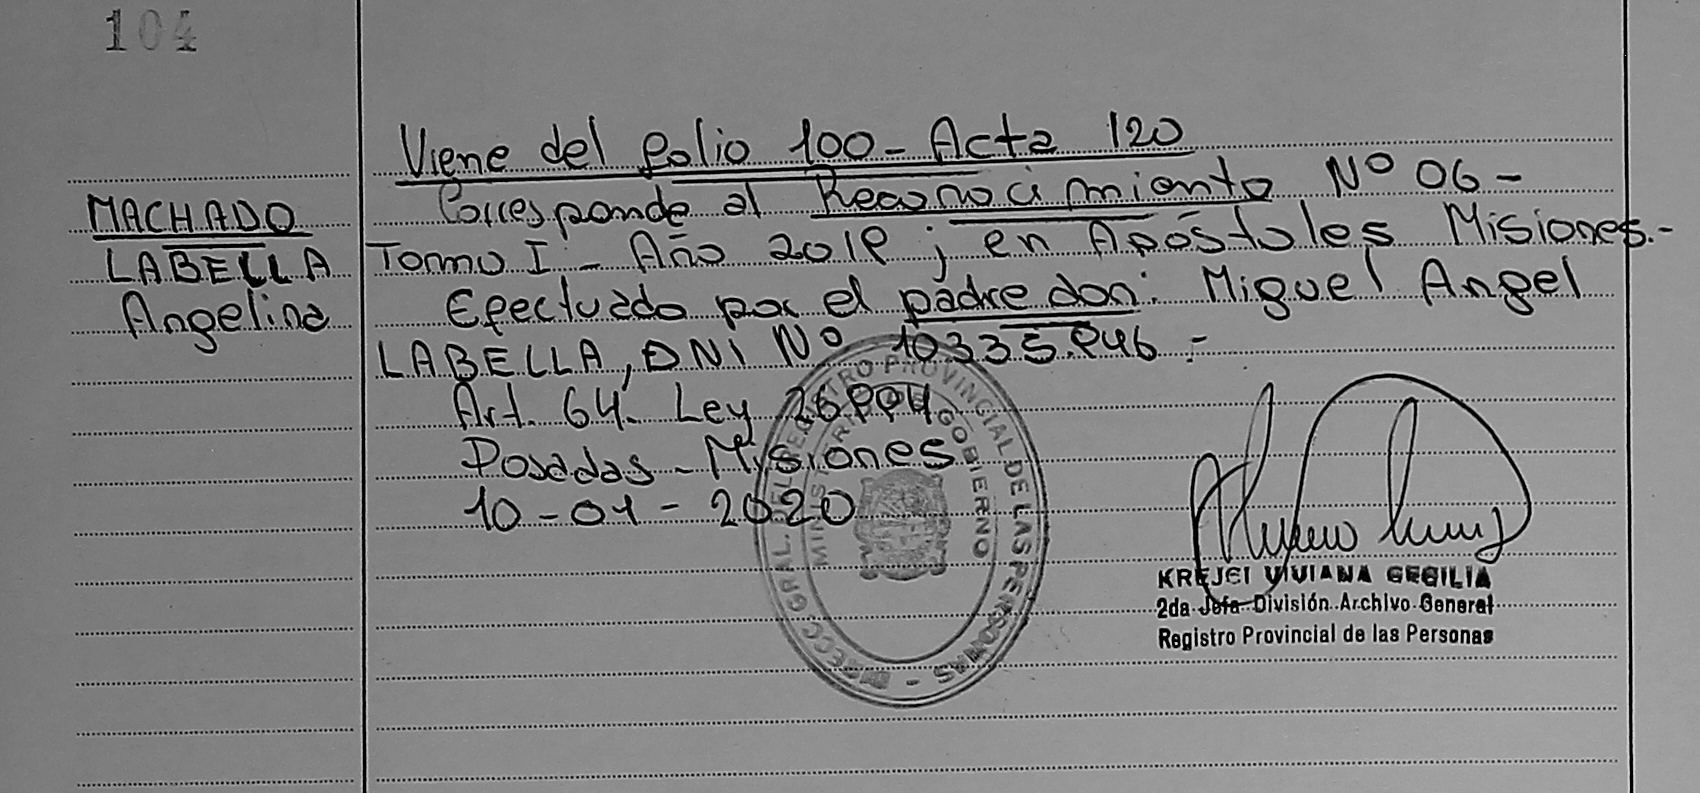 104
Viene del folio 100 - Acta 120
MACHADO
LABELLA
Angelina
Corresponde al Reconocimiento Nº 06 -
Tomo I - Año 2019 ; en Apóstoles Misiones.-
Efectuado por el padre don: Miguel Angel
LABELLA, DNI Nº 10335.946 :-
Art. 64. Ley 26994.
Posadas - Misiones
10 - 01 - 2020
DIRECC GRAL. DEL REGISTRO PROVINCIAL DE LAS PERSONAS -
GOBIERNO
KREJCI VIVIANA CECILIA
2da Jefa División Archivo General
Registro Provincial de las Personas